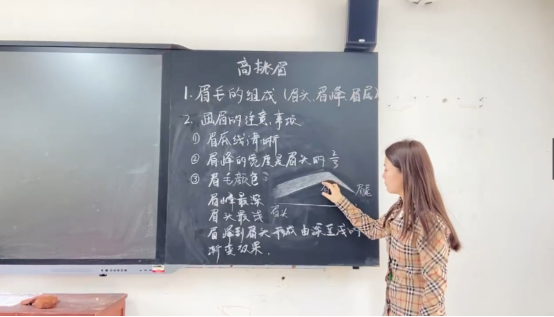 高挑眉
1. 眉毛的组成(眉头、眉峰、眉尾)
2. 画眉的注意事项
① 眉底线清晰
② 眉峰的宽度是眉头的2/3
③ 眉毛颜色:
眉峰最深
眉头最浅
眉峰到眉头形成由深至浅的
渐变效果.
眉头
眉尾